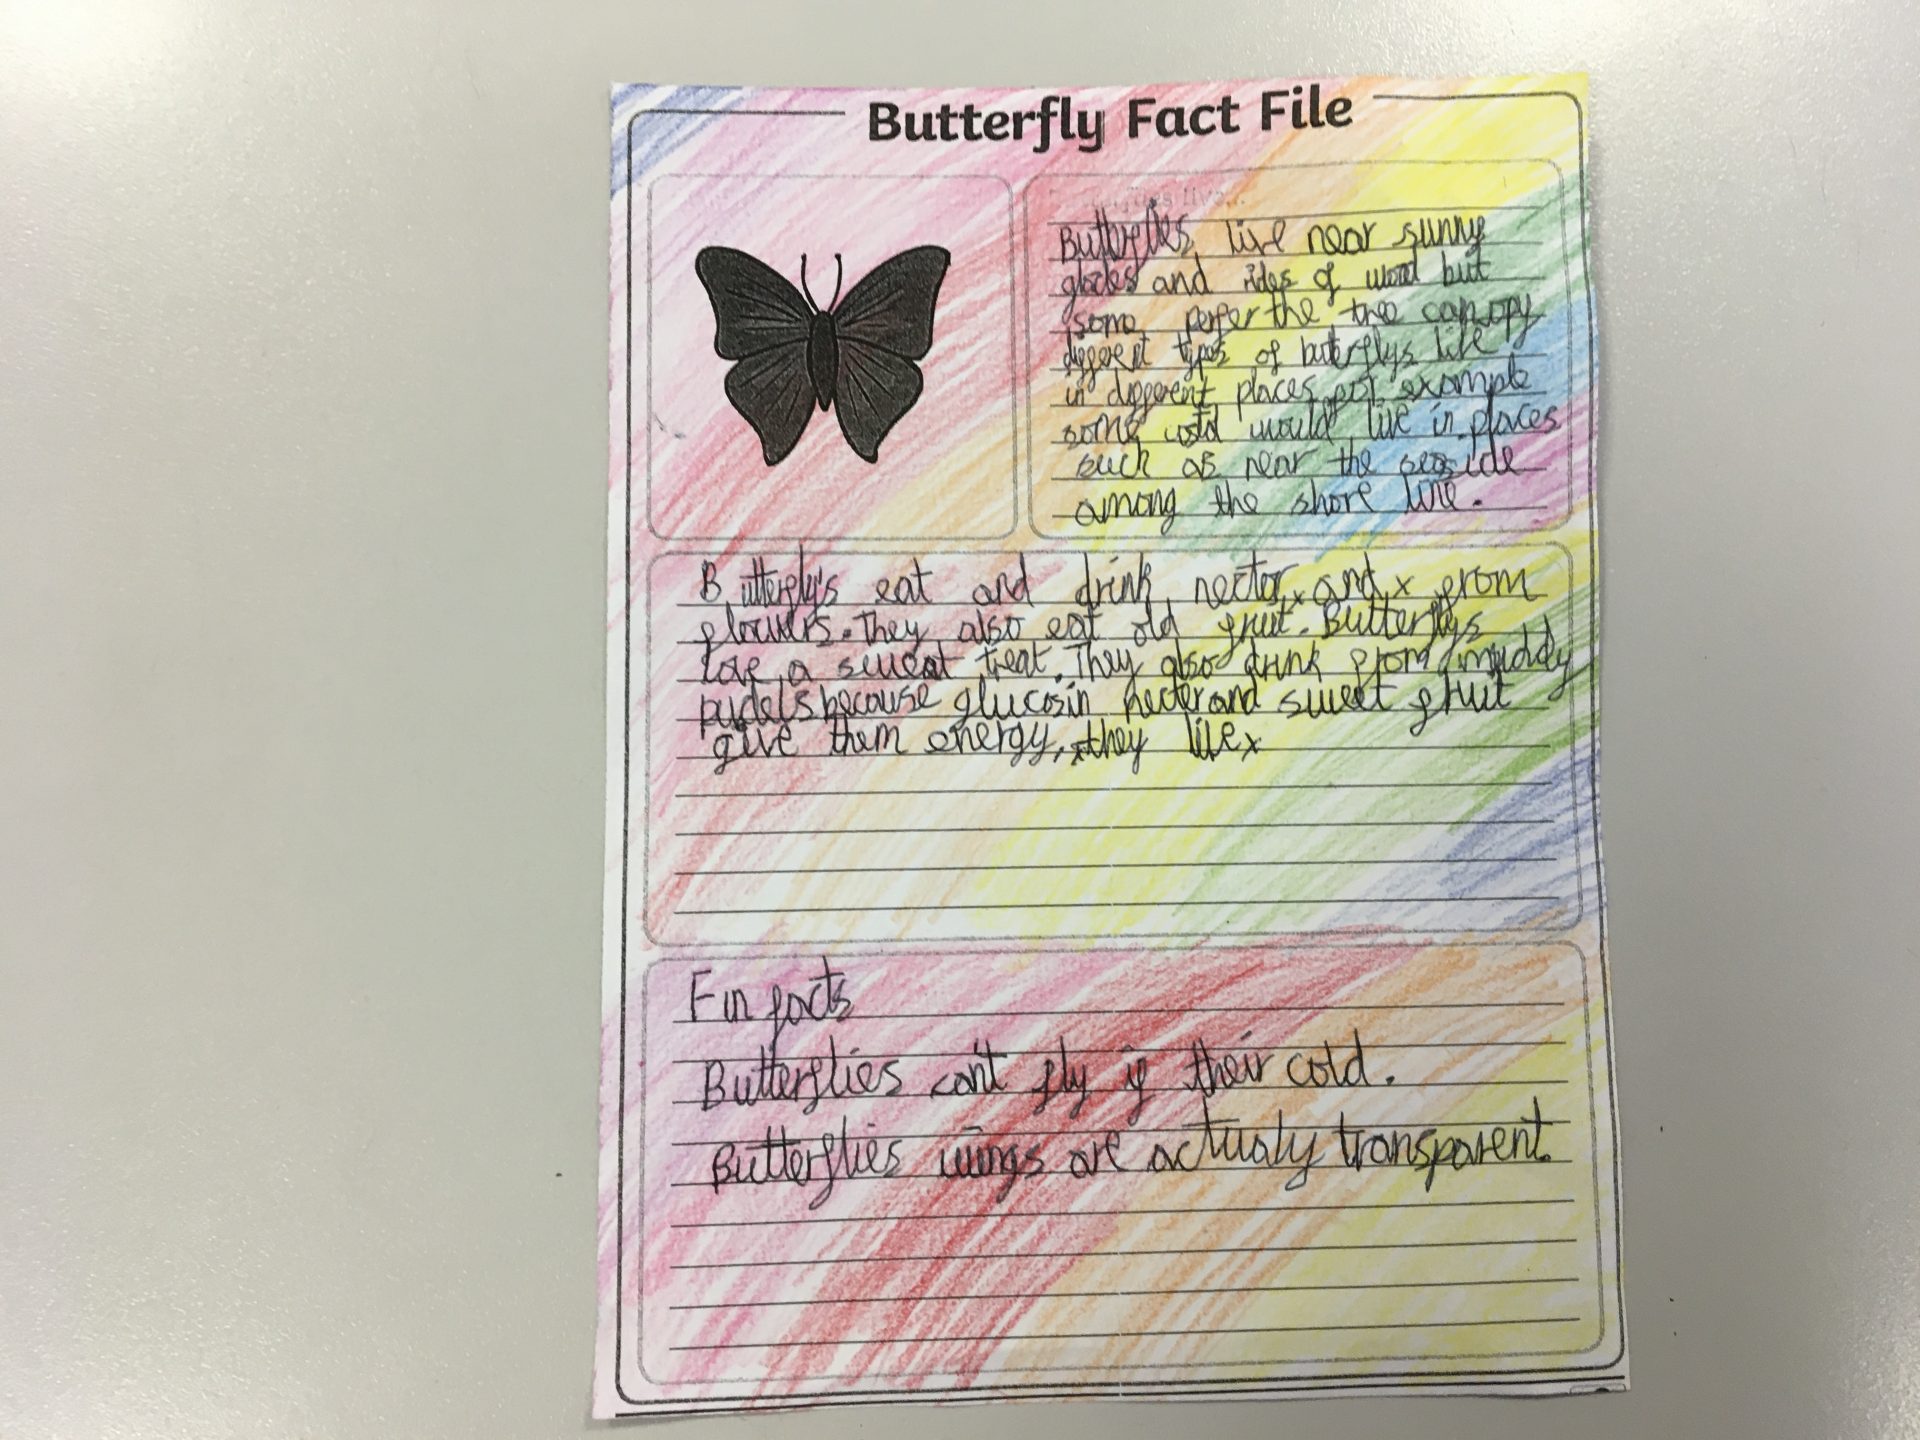 Butterfly Fact File
Butterflies live near sunny
glades and rides of wood but
some perfer the tree canopy
different types of butterflys live
in different places for example
some would live in places
such as near the seaside
among the shore line.
Butterflys eat and drink nector x and x from
flowers. They also eat old fruit. Butterflys
love a sweat treat. They also drink from muddy
pudels because glucosin necter and sweet fruit
give them energy, x they like x
Fun facts
Butterflies can't fly if their cold.
Butterflies wings are actualy transparent.